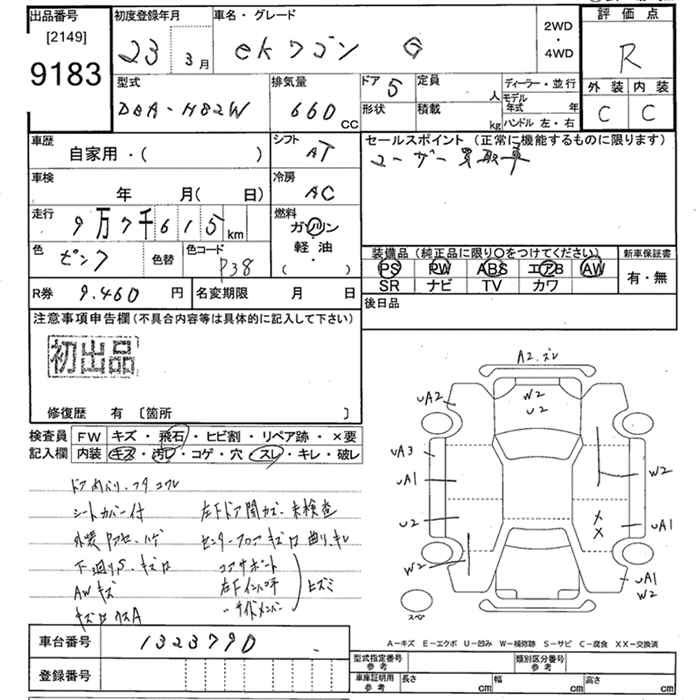 出品番号
[2149]
9183
初度登録年月
23 3月
車名・グレード
ekワゴン G
2WD
・
4WD
評価点
R
外装 内装
C C
型式
DBA-H82W
排気量
660 CC
ドア 5
形状
定員 人
積載 kg
ディーラー・並行
モデル年式 年
ハンドル 左・右
車歴
自家用・( )
シフト
AT
車検
年 月(日)
冷房
AC
走行
9万7千615km
燃料
ガソリン
・
軽・油
( )
色
ピンク
色替
色コード
P38
R券 9.460 円
名変期限 月 日
セールスポイント (正常に機能するものに限ります)
ユーザー買取車
装備品(純正品に限り〇をつけてください)
PS PW ABS エアB AW
SR ナビ TV カワ
新車保証書
有・無
後日品
注意事項申告欄(不具合内容等は具体的に記入して下さい)
初出品
修復歴 有 [箇所 ]
検査員 FW キズ・飛石・ヒビ割・リペア跡・×要
記入欄 内装 キズ・汚レ・コゲ・穴・スレ・キレ・破レ
シートカバー付
左下ドア開カズ・未検査
下廻りS、キズロ
コアサポート
AWキズ
左Fインパネ
サイドメンバー
ヒズミ
A2.ズレ
UA2
W2
U2
UA3
UA1
U2
W2
W2
××
UA1
UA1
W2
スペア
A-キズ E-エクボ U-凹み W-補修跡 S-サビ C-腐食 XX-交換済
車台番号 1323790
登録番号
型式指定番号参考
類別区分番号参考
車庫証明用参考 長さ cm 幅 cm 高さ cm